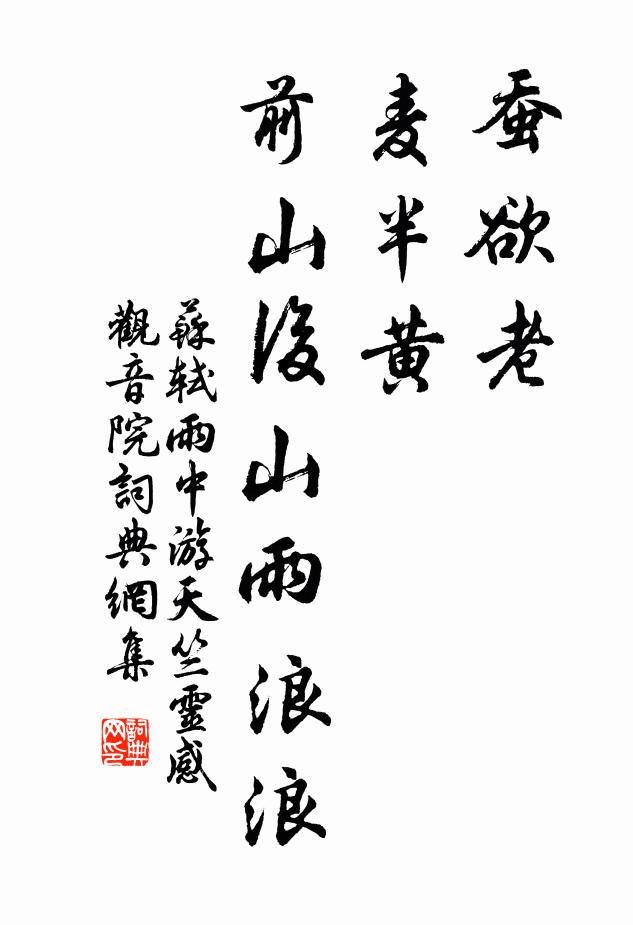 蚕欲老
麦半黄
前山後山雨浪浪
蘇軾雨中游天竺靈感
觀音院詞典網集
詞典
网印